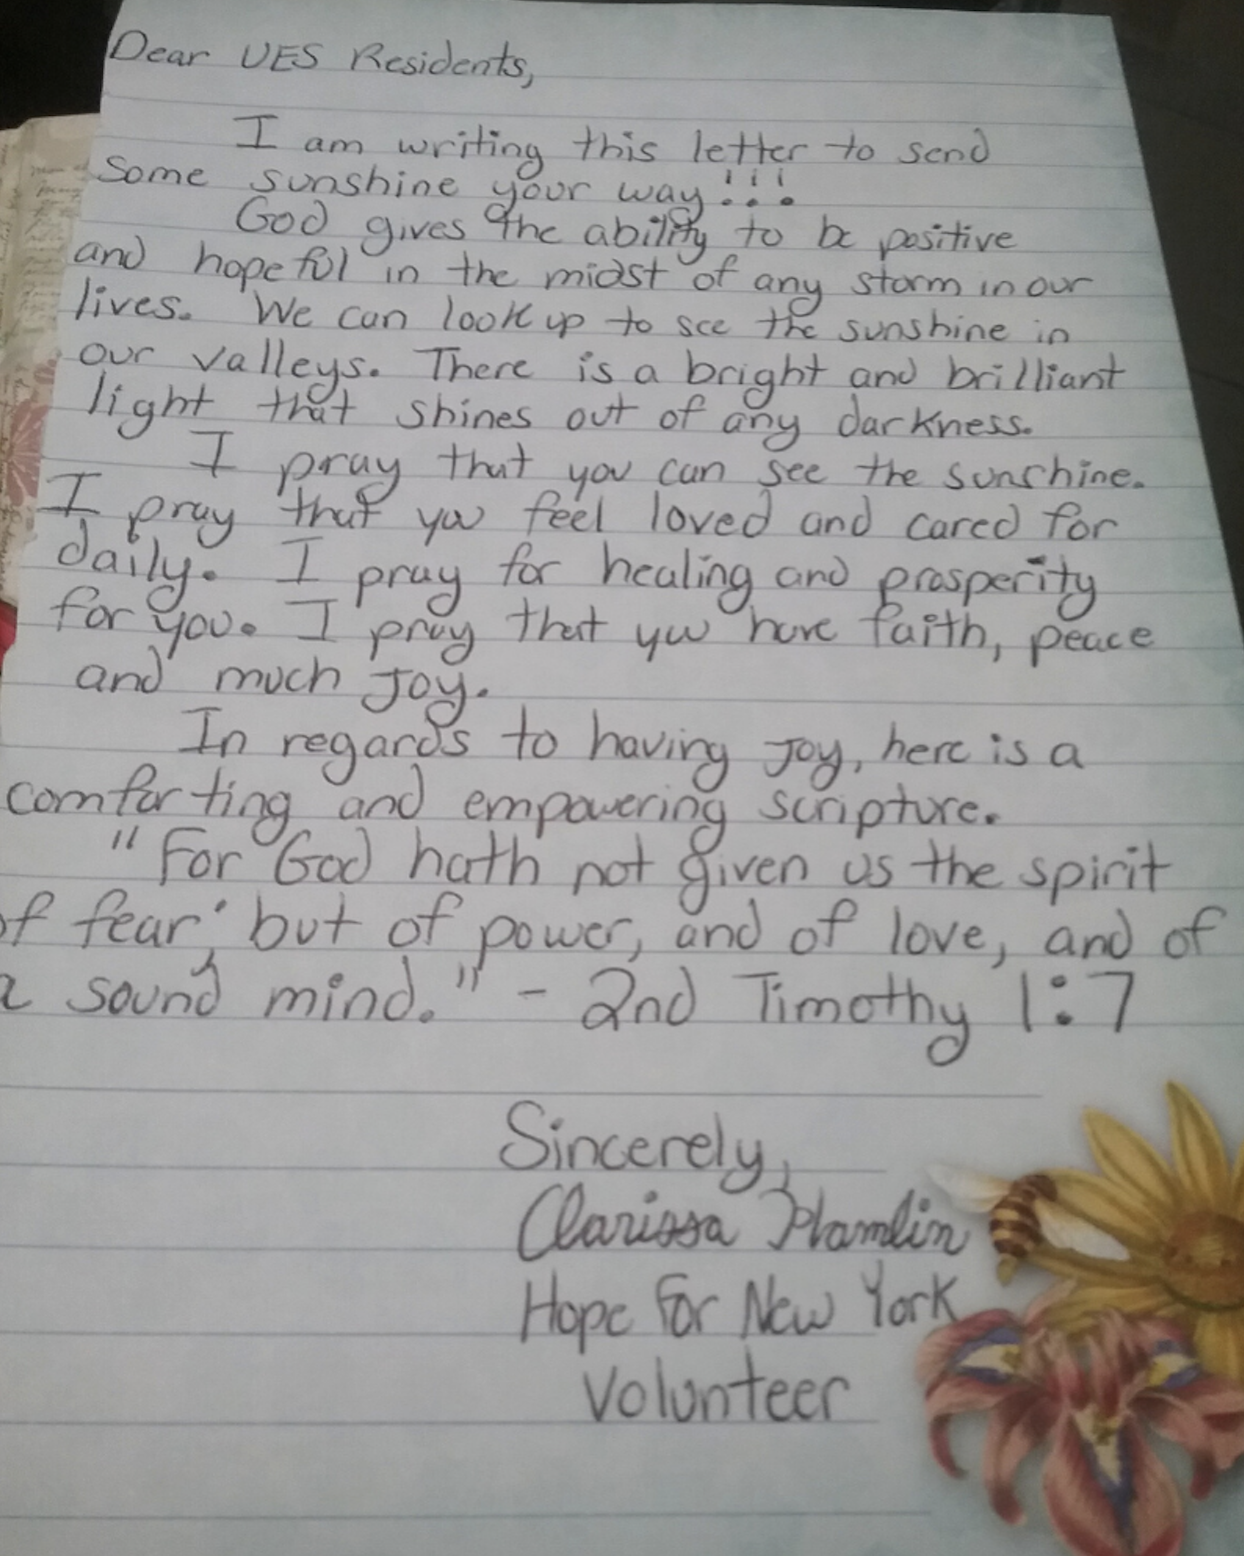 Dear UES Residents,
I am writing this letter to send
some sunshine your way!!!
God gives the ability to be positive
and hopeful in the midst of any storm in our
lives. We can look up to see the sunshine in
our valleys. There is a bright and brilliant
light that shines out of any darkness.
I pray that you can see the sunshine.
I pray that you feel loved and cared for
daily. I pray for healing and prosperity
for you. I pray that you have faith, peace
and much Joy.
In regards to having Joy, here is a
comforting and empowering scripture.
"For God hath not given us the spirit
of fear; but of power, and of love, and of
a sound mind." - 2nd Timothy 1:7
Sincerely,
Clarissa Hamlin
Hope For New York
Volunteer